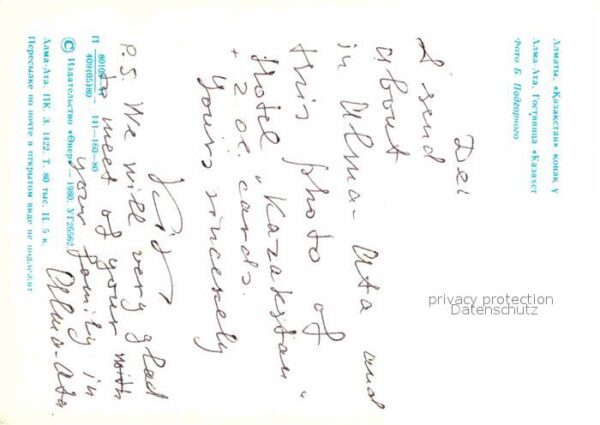 Алматы. «Қазақстан» қонақ ү
Алма-Ата. Гостиница «Казахст
Фото Б. Подгорного
Dei
I send
about
in Alma-Ata and
this photo of
Hotel „Kazakstan"
+ 2 oc. cards.
Yours sincerely
P.S. We will very glad
to meet of your with
your family in
Alma-Ata
П 80109- 141—160—80
409(05)80
© Издательство «Өнер» — 1980. УГ26562
Алма-Ата. ПК. З. 1422. Т. 80 тыс. Ц. 5 к.
Пересылке по почте в открытом виде не подлежит
privacy protection
Datenschutz